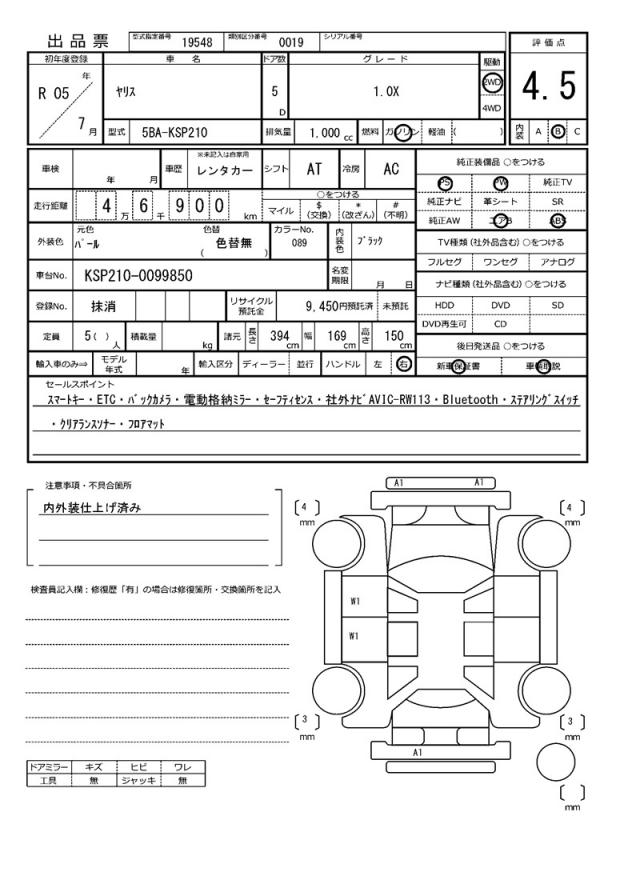 出品票 型式指定番号 19548 類別区分番号 0019 シリアル番号
初年度登録 車名 ドア数 グレード 駆動 評価点
R 05 年 7 月 ヤリス 5 D 1.0X 2WD 4WD 4.5
型式 5BA-KSP210 排気量 1,000 cc 燃料 ガソリン 軽油 ( ) 内装 A B C
車検 年 月 車歴 ※未記入は自家用 レンタカー シフト AT 冷房 AC
走行距離 4 万 6 千 9 0 0 km ○をつける
マイル $ (交換) * (改ざん) # (不明)
外装色 元色 パール 色替 ( 色替無 ) カラーNo. 089 内装色 ブラック
車台No. KSP210-0099850 名変期限 月 日
登録No. 抹消 リサイクル預託金 9,450円預託済 未預託
定員 5( ) 人 積載量 kg 諸元 長さ 394 cm 幅 169 cm 高さ 150 cm
輸入車のみ⇒ モデル年式 年 輸入区分 ディーラー 並行 ハンドル 左 右
純正装備品 ○をつける
PS PW 純正TV
純正ナビ 革シート SR
純正AW エアB ABS
TV種類(社外品含む)○をつける
フルセグ ワンセグ アナログ
ナビ種類(社外品含む)○をつける
HDD DVD SD
DVD再生可 CD
後日発送品 ○をつける
新車保証書 車輌取説
セールスポイント
スマートキー・ETC・バックカメラ・電動格納ミラー・セーフティセンス・社外ナビAVIC-RW113・Bluetooth・ステアリングスイッチ
・クリアランスソナー・フロアマット
注意事項・不具合箇所
内外装仕上げ済み
検査員記入欄:修復歴「有」の場合は修復箇所・交換箇所を記入
ドアミラー キズ ヒビ ワレ
工具 無 ジャッキ 無
A1 A1
[ 4 ] mm
[ 4 ] mm
W1
W1
[ 3 ] mm
[ 3 ] mm
A1
[ ] mm